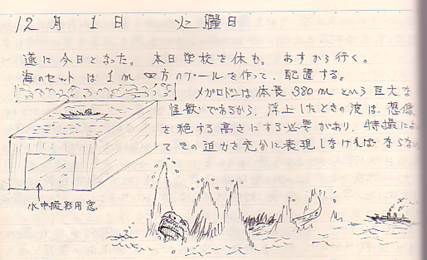 12月1日 火曜日
遂に今日となった。本日学校を休も。あすから行く。
海のセットは1m四方のプールを作って、配置する。
メガロドンは体長380mという巨大な
怪獣であるから、浮上したときの波は、想像
を絶する高さにする必要があり、特撮によっ
てその迫力を充分に表現しなければならな
水中撮影用窓